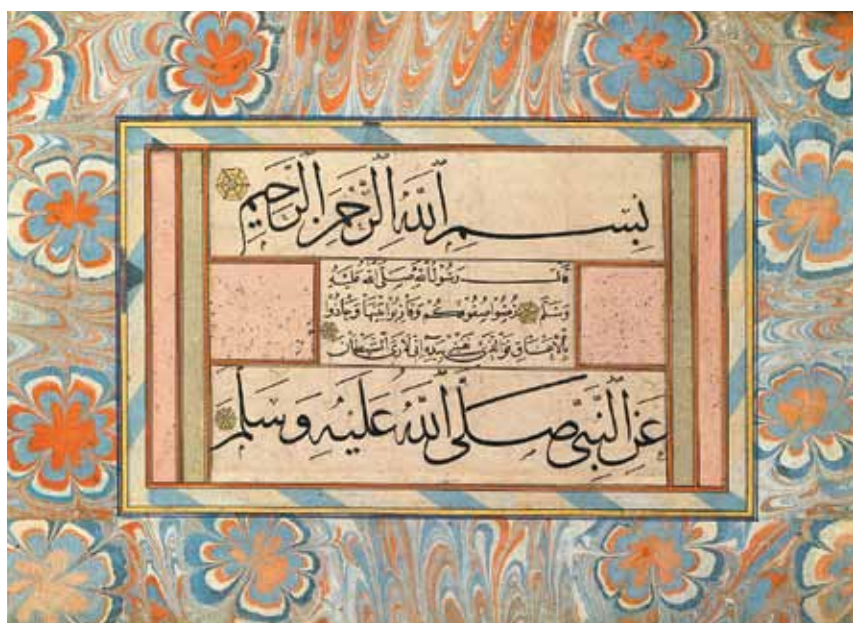 بِسْمِ اللهِ الرَّحْمٰنِ الرَّحِيمِ
قَالَ رَسُولُ اللهِ صَلَّى اللهُ عَلَيْهِ
وَسَلَّمَ رُصُّوا صُفُوفَكُمْ وَقَارِبُوا بَيْنَهَا وَحَاذُوا
بِالْأَعْنَاقِ فَوَالَّذِي نَفْسِي بِيَدِهِ إِنِّي لَأَرَى الشَّيْطَانَ
عَنِ النَّبِيِّ صَلَّى اللهُ عَلَيْهِ وَسَلَّمَ